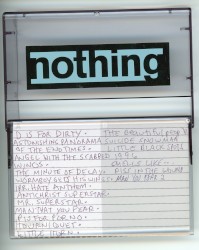 nothing
D IS FOR DIRTY. THE BEAUTIFUL PEOPLE
ASTONISHING PANORAMA SUICIDE SNOWMAN
OF THE ENDTIMES LITTLE BLACK
ANGEL WITH THE SCABBED 1996
WINGS
THE MINUTE OF DECAY. RISE IN THE
WORMBOY
IRR. HATE ANTHEM
ANTICHRIST SUPERSTAR
MR. SUPERSTAR
MAN THAT YOU FEAR
TOURNIQUET
LITTLE HORN